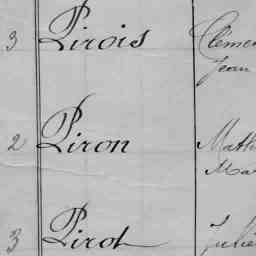 3 Pirois Clémen
Jean
2 Piron Math
Ma
3 Pirot Julie